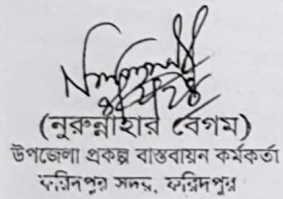 (নুরুন্নাহার বেগম)
উপজেলা প্রকল্প বাস্তবায়ন কর্মকর্তা
ফরিদপুর সদর, ফরিদপুর